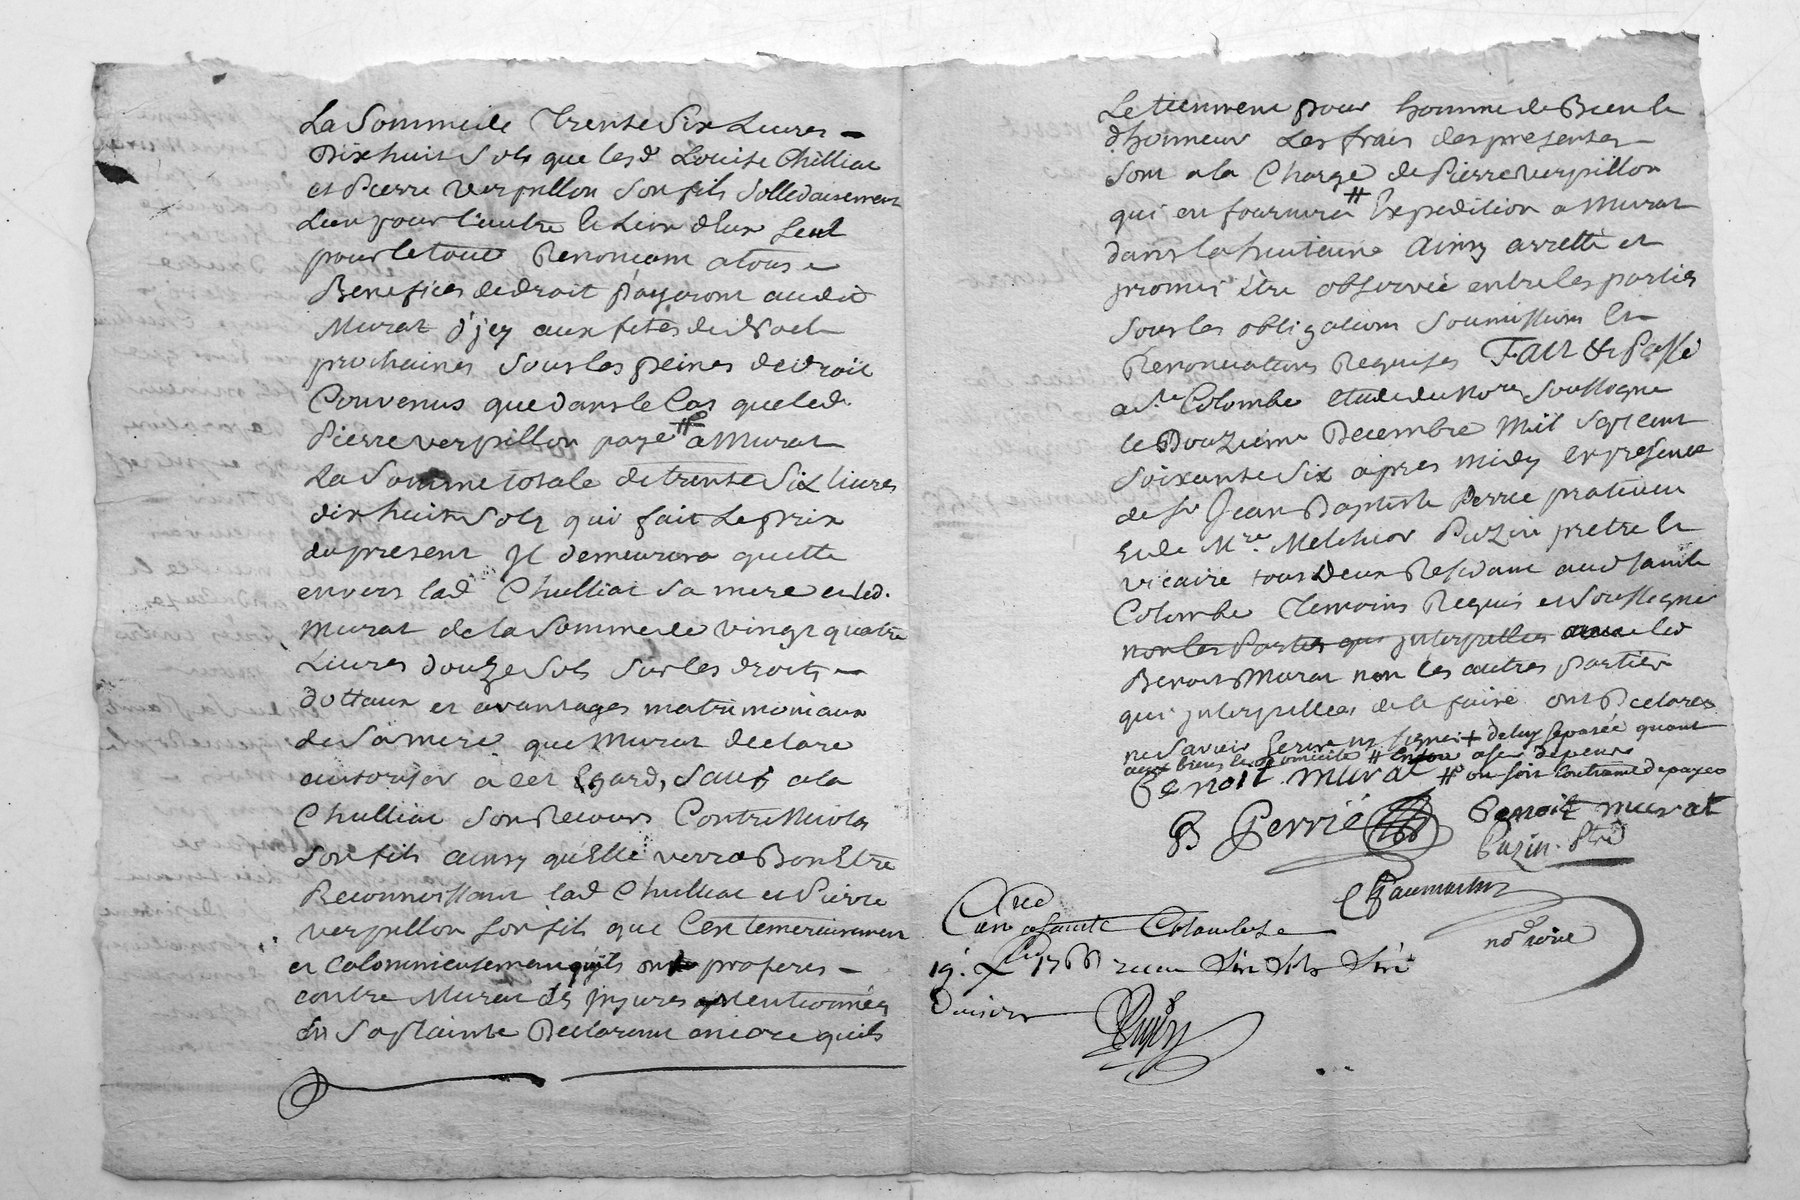 La Somme de Trente Six Livres –
Dix huit Sols que lesd. Louise Chilliat
et Pierre Verpillon Son fils Sollidairement
L'un pour l'autre et L'un d'Eux Seul
pour le tout Renoncant a tous
Benefices de droit payeront audit
Murat d'jcy aux fetes de Noel
prochaines Sous les peines de droit
Convenus que dans le Cas que led.
Pierre verpillon paye # a Murat
La Somme totale de trente Six livres
dix huit Sols qui fait Le prix
du present Il demeurera quitte
envers lad Chulliat Sa mere et led.
Murat de la Somme de vingt quatre
Livres douze Sols Sur les droits –
dottaux et avantages matrimoniaux
de Sa mere que Murat declare
autoriser a cet Egard, Sauf a la
Chulliat Son Recours Contre Nicolas
Son fils ainsy qu'Elle verra Bon Etre
Reconnoissant lad Chulliat et Pierre
verpillon Son fils que C'est temerairement
et Calomnieusement qu'ils ont proferes –
contre Murat des Injures mentionnées
En Sa plainte Declarent encore qu'ils
Le tiennent pour homme de Bien et
d'honneur Les frais des presentes
Sont a la Charge de Pierre Verpillon
qui en fournira # Expedition a Murat
dans la huitaine Ainsy arretté et
promis être observée entre les parties
Sous les obligations Soumissions et
Renonciations Requises Fait & Passé
a Ste Colombe etude du Nore Soussigne
le Douzieme Decembre Mil Sept cent
Soixante Six apres midy en presence
de Sr Jean Baptiste Perrie praticien
Et de Mre Melchior Puzin pretre et
vicaire tous Deux Residant aud Sainte
Colombe Temoins Requis et Soussignes
non les Parties qui jnterpellees avec led
Benoit Murat non les autres parties
qui jnterpellees de le faire ont Declarés
ne Savoir Ecrire ny Signer + de luy Separée quant
aux biens # Encore a ses depens
Benoit murat #° ou Soit Contraint de payer
B Perrié Benoit murat
Puzin. Ptre
notaire
a Sainte Colombe
19. Xbre 1766 recu Six Sols Six
Deniers